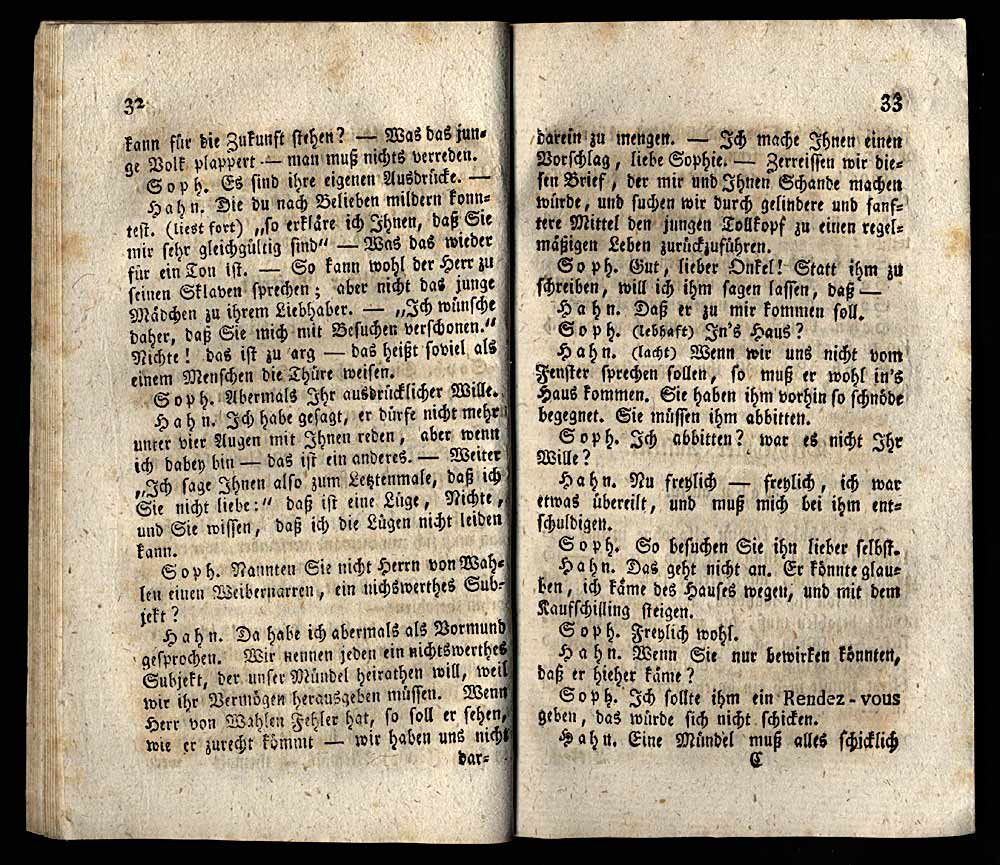 32
kann für die Zukunft stehen? — Was das jun=
ge Volk plappert — man muß nichts verreden.
Soph. Es sind ihre eigenen Ausdrücke. —
Hahn. Die du nach Belieben mildern konn=
test. (liest fort) „so erkläre ich Ihnen, daß Sie
mir sehr gleichgültig sind“ — Was das wieder
für ein Ton ist. — So kann wohl der Herr zu
seinen Sklaven sprechen; aber nicht das junge
Mädchen zu ihrem Liebhaber. — „Ich wünsche
daher, daß Sie mich mit Besuchen verschonen.“
Nichte! das ist zu arg — das heißt soviel als
einem Menschen die Thüre weisen.
Soph. Abermals Ihr ausdrücklicher Wille.
Hahn. Ich habe gesagt, er dürfe nicht mehr
unter vier Augen mit Ihnen reden, aber wenn
ich dabey bin — das ist ein anderes. — Weiter
„Ich sage Ihnen also zum Letztenmale, daß ich
Sie nicht liebe:“ daß ist eine Lüge, Nichte,
und Sie wissen, daß ich die Lügen nicht leiden
kann.
Soph. Nannten Sie nicht Herrn von Wah=
len einen Weibernarren, ein nichswerthes Sub=
jekt?
Hahn. Da habe ich abermals als Vormund
gesprochen. Wir nennen jeden ein nichtswerthes
Subjekt, der unser Mündel heirathen will, weil
wir ihr Vermögen herausgeben müssen. Wenn
Herr von Wahlen Fehler hat, so soll er sehen,
wie er zurecht kömmt — wir haben uns nicht
dar=
33
darein zu mengen. — Ich mache Ihnen einen
Vorschlag, liebe Sophie. — Zerreissen wir die=
sen Brief, der mir und Ihnen Schande machen
würde, und suchen wir durch gelindere und sanf=
tere Mittel den jungen Tollkopf zu einen regel=
mäßigen Leben zurückzuführen.
Soph. Gut, lieber Onkel! Statt ihm zu
schreiben, will ich ihm sagen lassen, daß —
Hahn. Daß er zu mir kommen soll.
Soph. (lebhaft) In's Haus?
Hahn. (lacht) Wenn wir uns nicht vom
Fenster sprechen sollen, so muß er wohl in's
Haus kommen. Sie haben ihm vorhin so schnöde
begegnet. Sie müssen ihm abbitten.
Soph. Ich abbitten? war es nicht Ihr
Wille?
Hahn. Nu freylich — freylich, ich war
etwas übereilt, und muß mich bei ihm ent=
schuldigen.
Soph. So besuchen Sie ihn lieber selbst.
Hahn. Das geht nicht an. Er könnte glau=
ben, ich käme des Hauses wegen, und mit dem
Kaufschilling steigen.
Soph. Freylich wohl.
Hahn. Wenn Sie nur bewirken könnten,
daß er hieher käme?
Soph. Ich sollte ihm ein Rendez-vous
geben, das würde sich nicht schicken.
Hahn. Eine Mündel muß alles schicklich
C